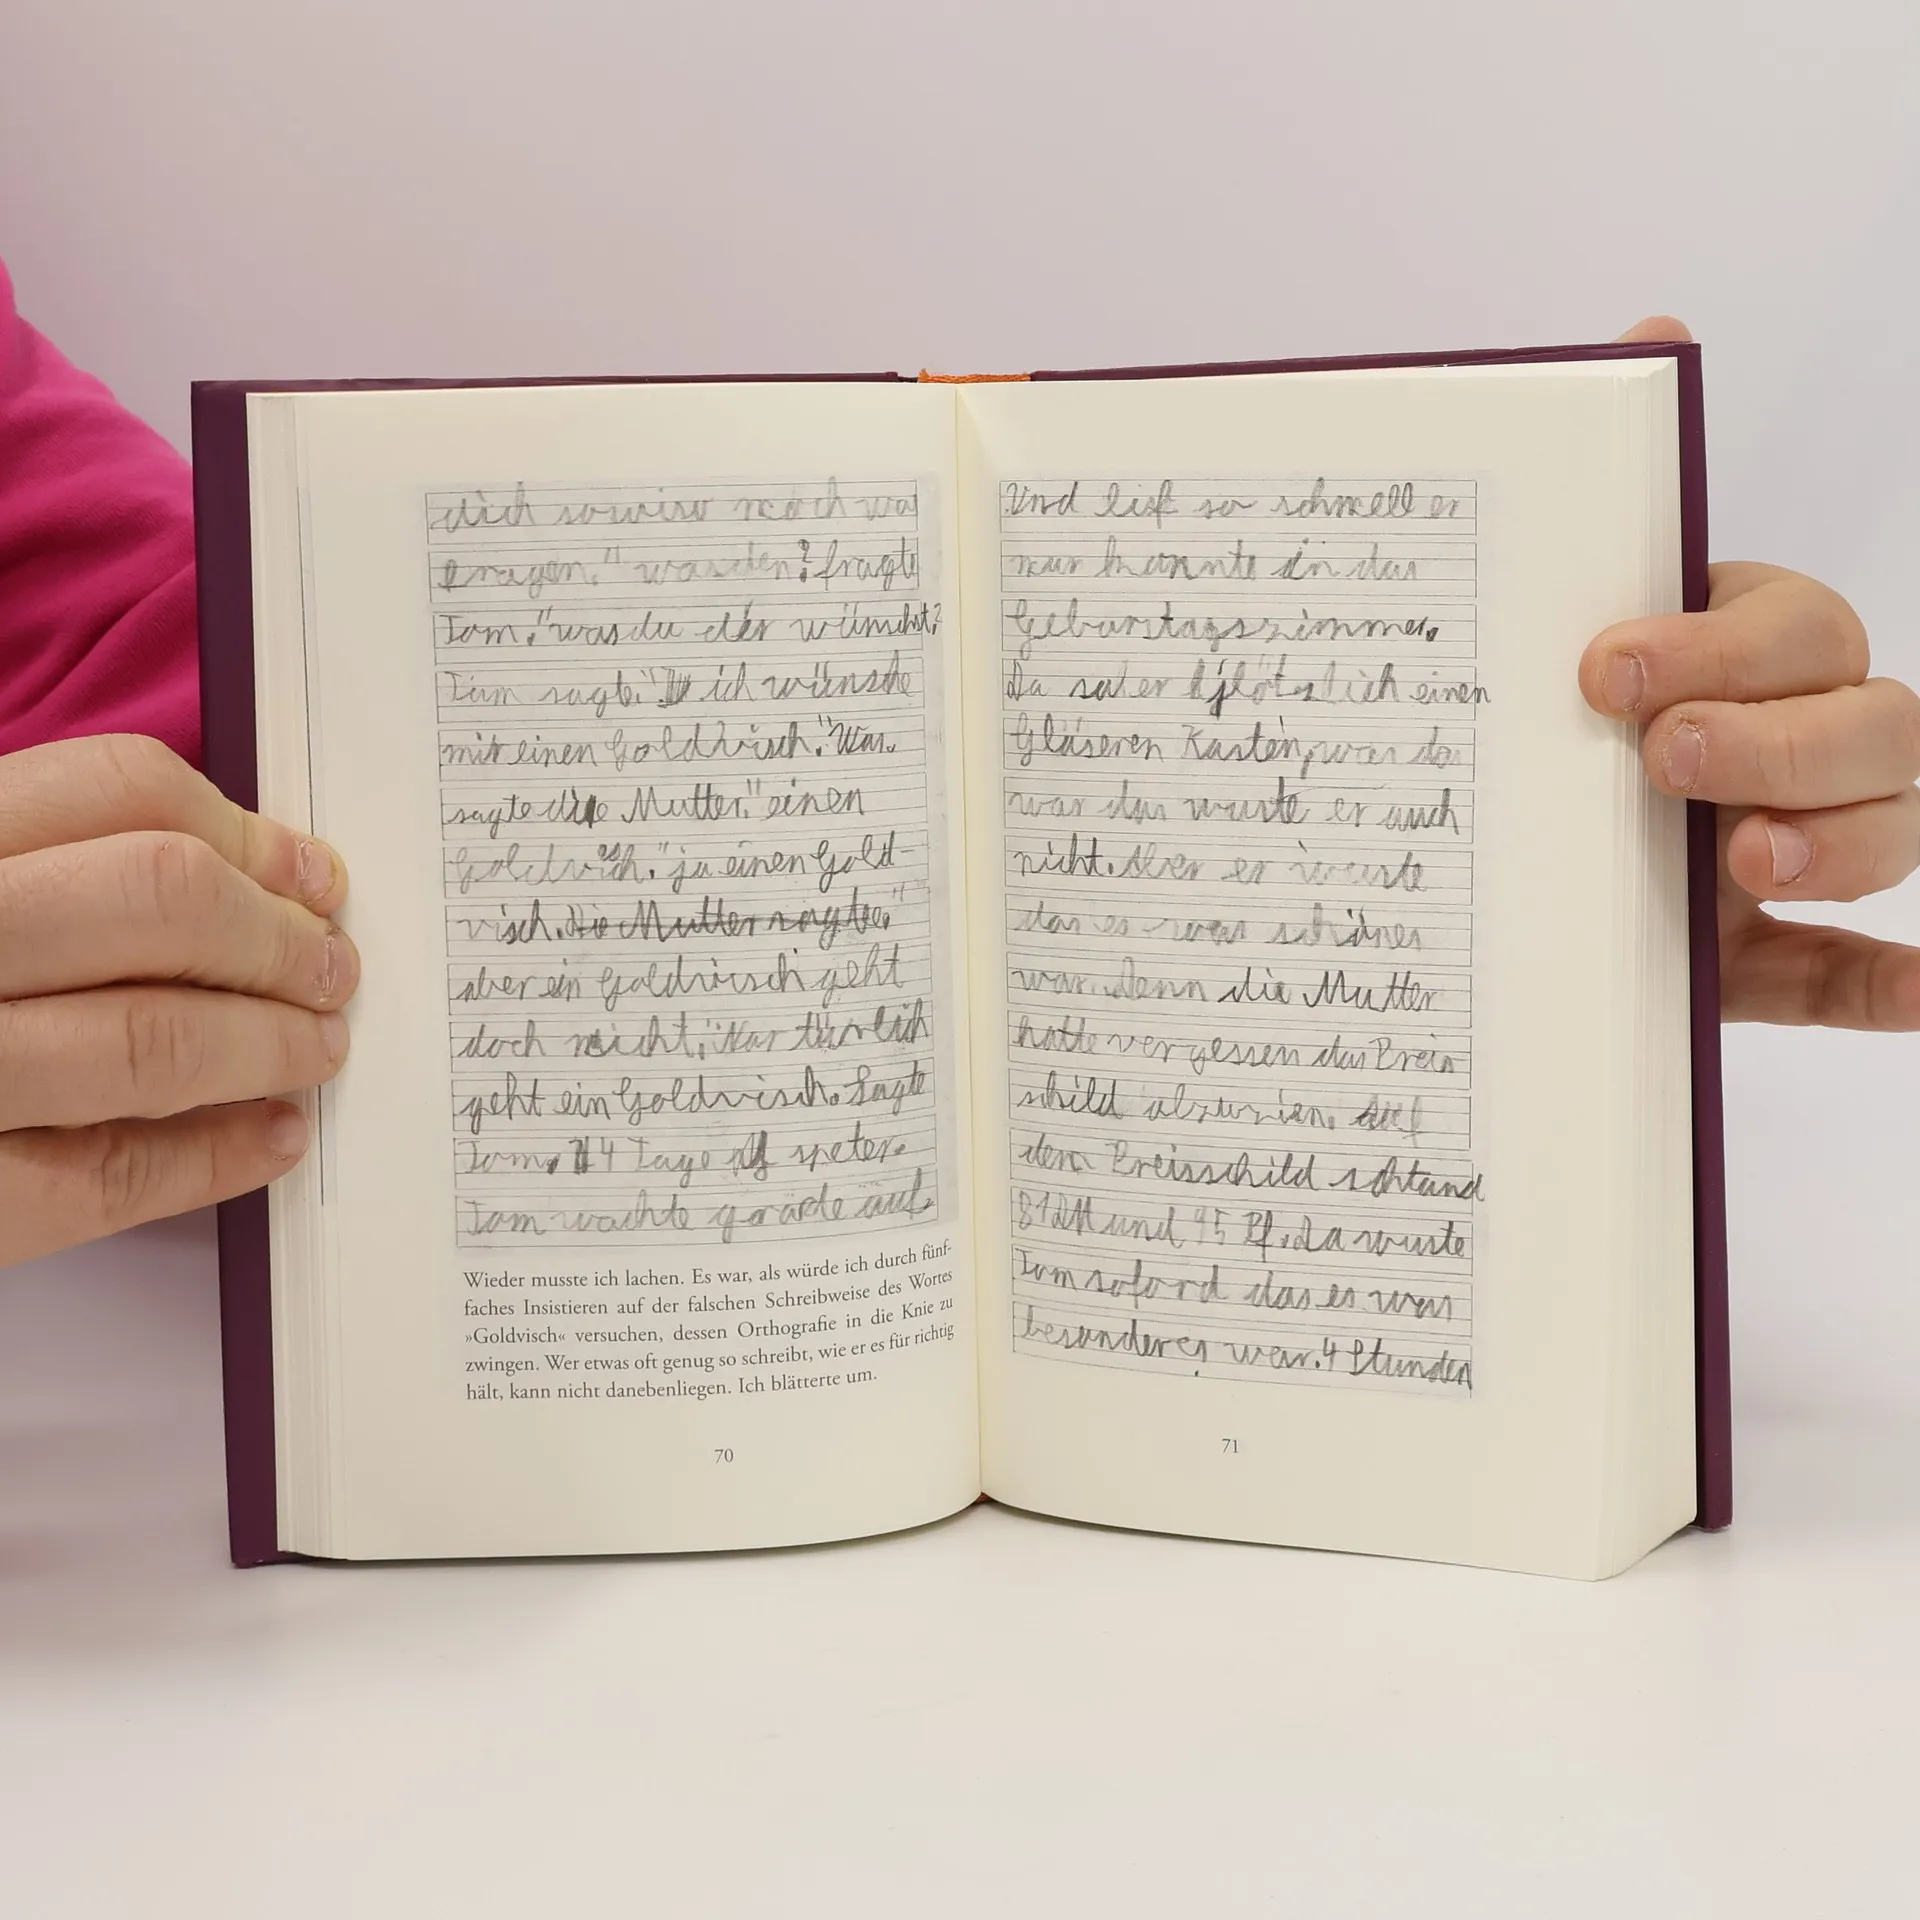 dich sowiso noch wa
fragen." wasden? fragte
Tom." was du dir wünschst?
Tom sagte:" ich wünsche
mir einen Goldvisch." Was
sagte die Mutter." einen
Goldvisch." ja einen Gold-
visch. Die Mutter sagte."
aber ein Goldvisch geht
doch nicht." Nartürlich
geht ein Goldvisch. Sagte
Tom. 14 Tage speter.
Tom wachte gerade auf.
Wieder musste ich lachen. Es war, als würde ich durch fünf-
faches Insistieren auf der falschen Schreibweise des Wortes
»Goldvisch« versuchen, dessen Orthografie in die Knie zu
zwingen. Wer etwas oft genug so schreibt, wie er es für richtig
hält, kann nicht danebenliegen. Ich blätterte um.
70
Und lief so schnell er
nur kannte in das
Geburstagszimmer.
Da sa er plötzlich einen
Gläseren Kasten, was da
war das wuste er auch
nicht. Aber er wuste
das es was schönes
war. Denn die Mutter
hatte vergessen das Preis
schild abzuzien. auf
dem Preisschild schtand
81 DM und 95 Pf. Da wuste
Tom soford das es was
besonderes war. 4 Stunden
71